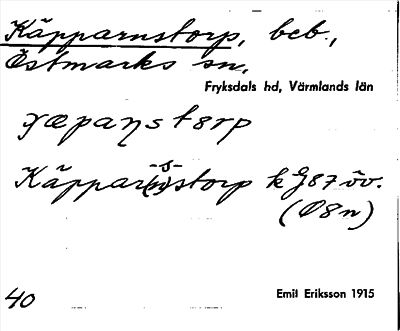 Käpparnstorp, beb.,
Östmarks sn,
Fryksdals hd, Värmlands län
-s-
Käppar(n)storp k J87 öv.
(Ø8n)
40
Emil Eriksson 1915